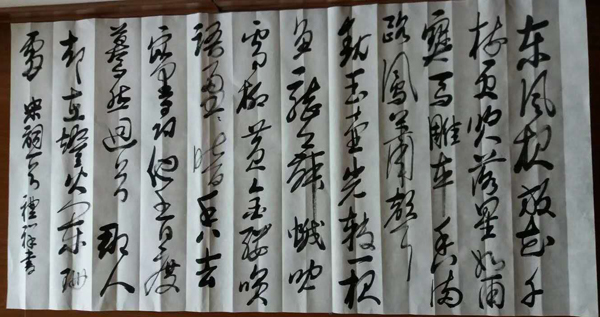 东风夜放花千
树更吹落星如雨
寶马雕车香满
路鳳箫声
动玉壶光转一夜
鱼龙舞蛾儿
雪柳黄金缕笑
语盈盈暗香去
众里寻他千百度
蓦然回首那人
却在燈火阑珊
处宋词一首禮祥书